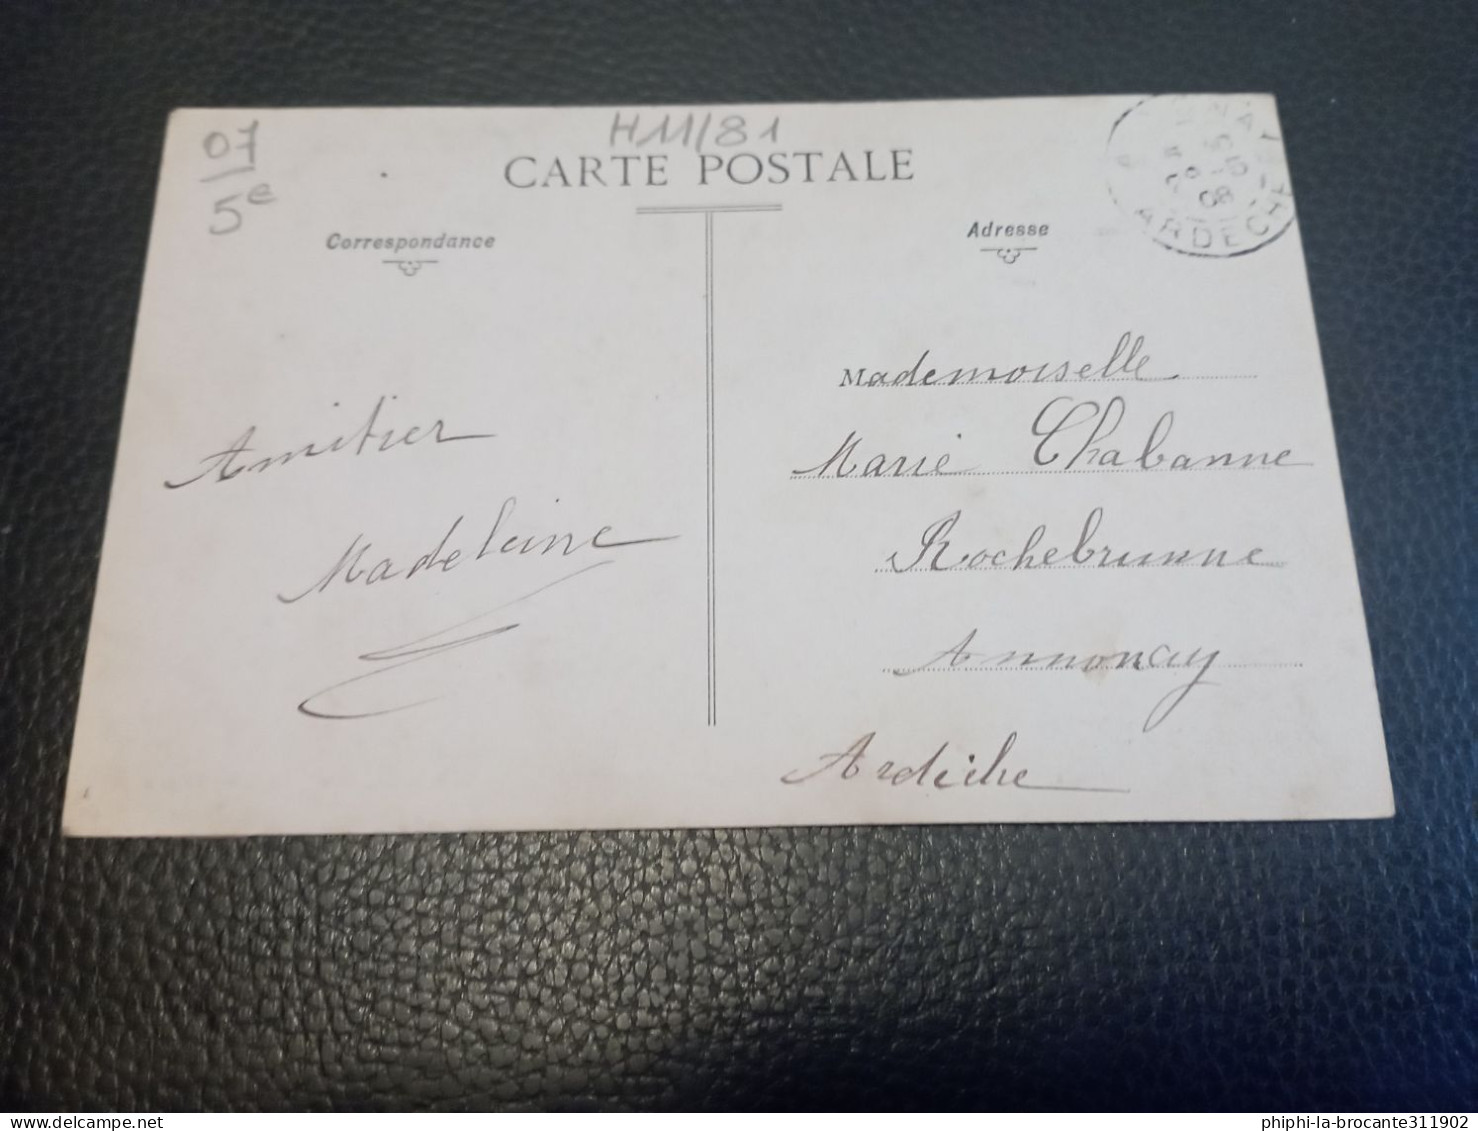 07
5e
H11/81
CARTE POSTALE
Correspondance
Adresse
ARDECHE
08
Amitier
Madeleine
Mademoiselle
Marie Chabanne
Rochebrunne
Annonay
Ardèche
delcampe.net
phiphi-la-brocante311902